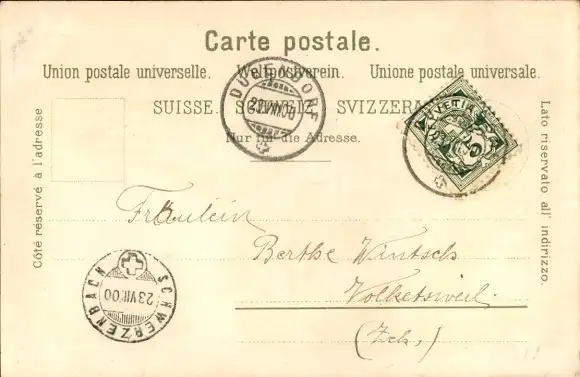 Carte postale.
Union postale universelle. Weltpostverein. Unione postale universale.
SUISSE. SCHWEIZ. SVIZZERA.
Nur für die Adresse.
Côté réservé à l'adresse
Lato riservato all' indirizzo.
DÜBENDORF
23.VII.00
HELVETIA
5
Fräulein
Berthe Wintsch
Volketsweil
(Zch.)
SCHWERZENBACH
23.VII.00